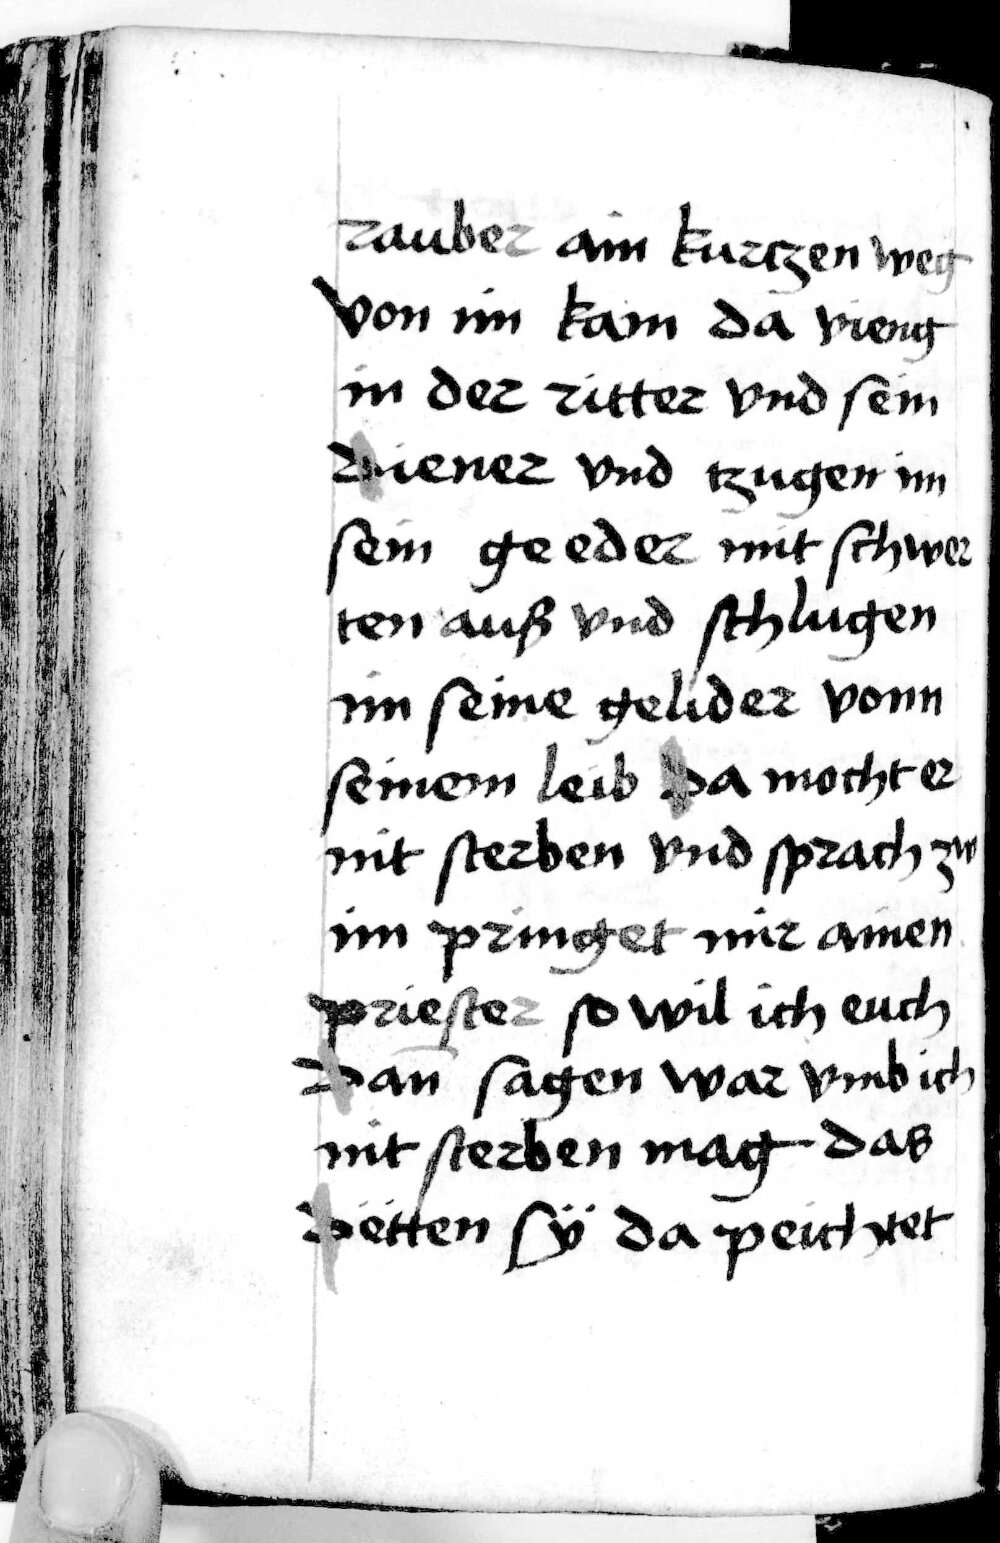 rauber ain kurtzen weg
von im kam da vieng
in der ritter vnd sein
Diener vnd tzugen im
sein geeder mit schwer
ten auß vnd schlugen
im seine gelider vonn
seinem leib Da mocht er
nit sterben vnd sprach zw
im pringet mir ainen
priester so wil ich euch
Dan̄ sagen war vmb ich
nit sterben mag das
Detten sÿ da peichtet